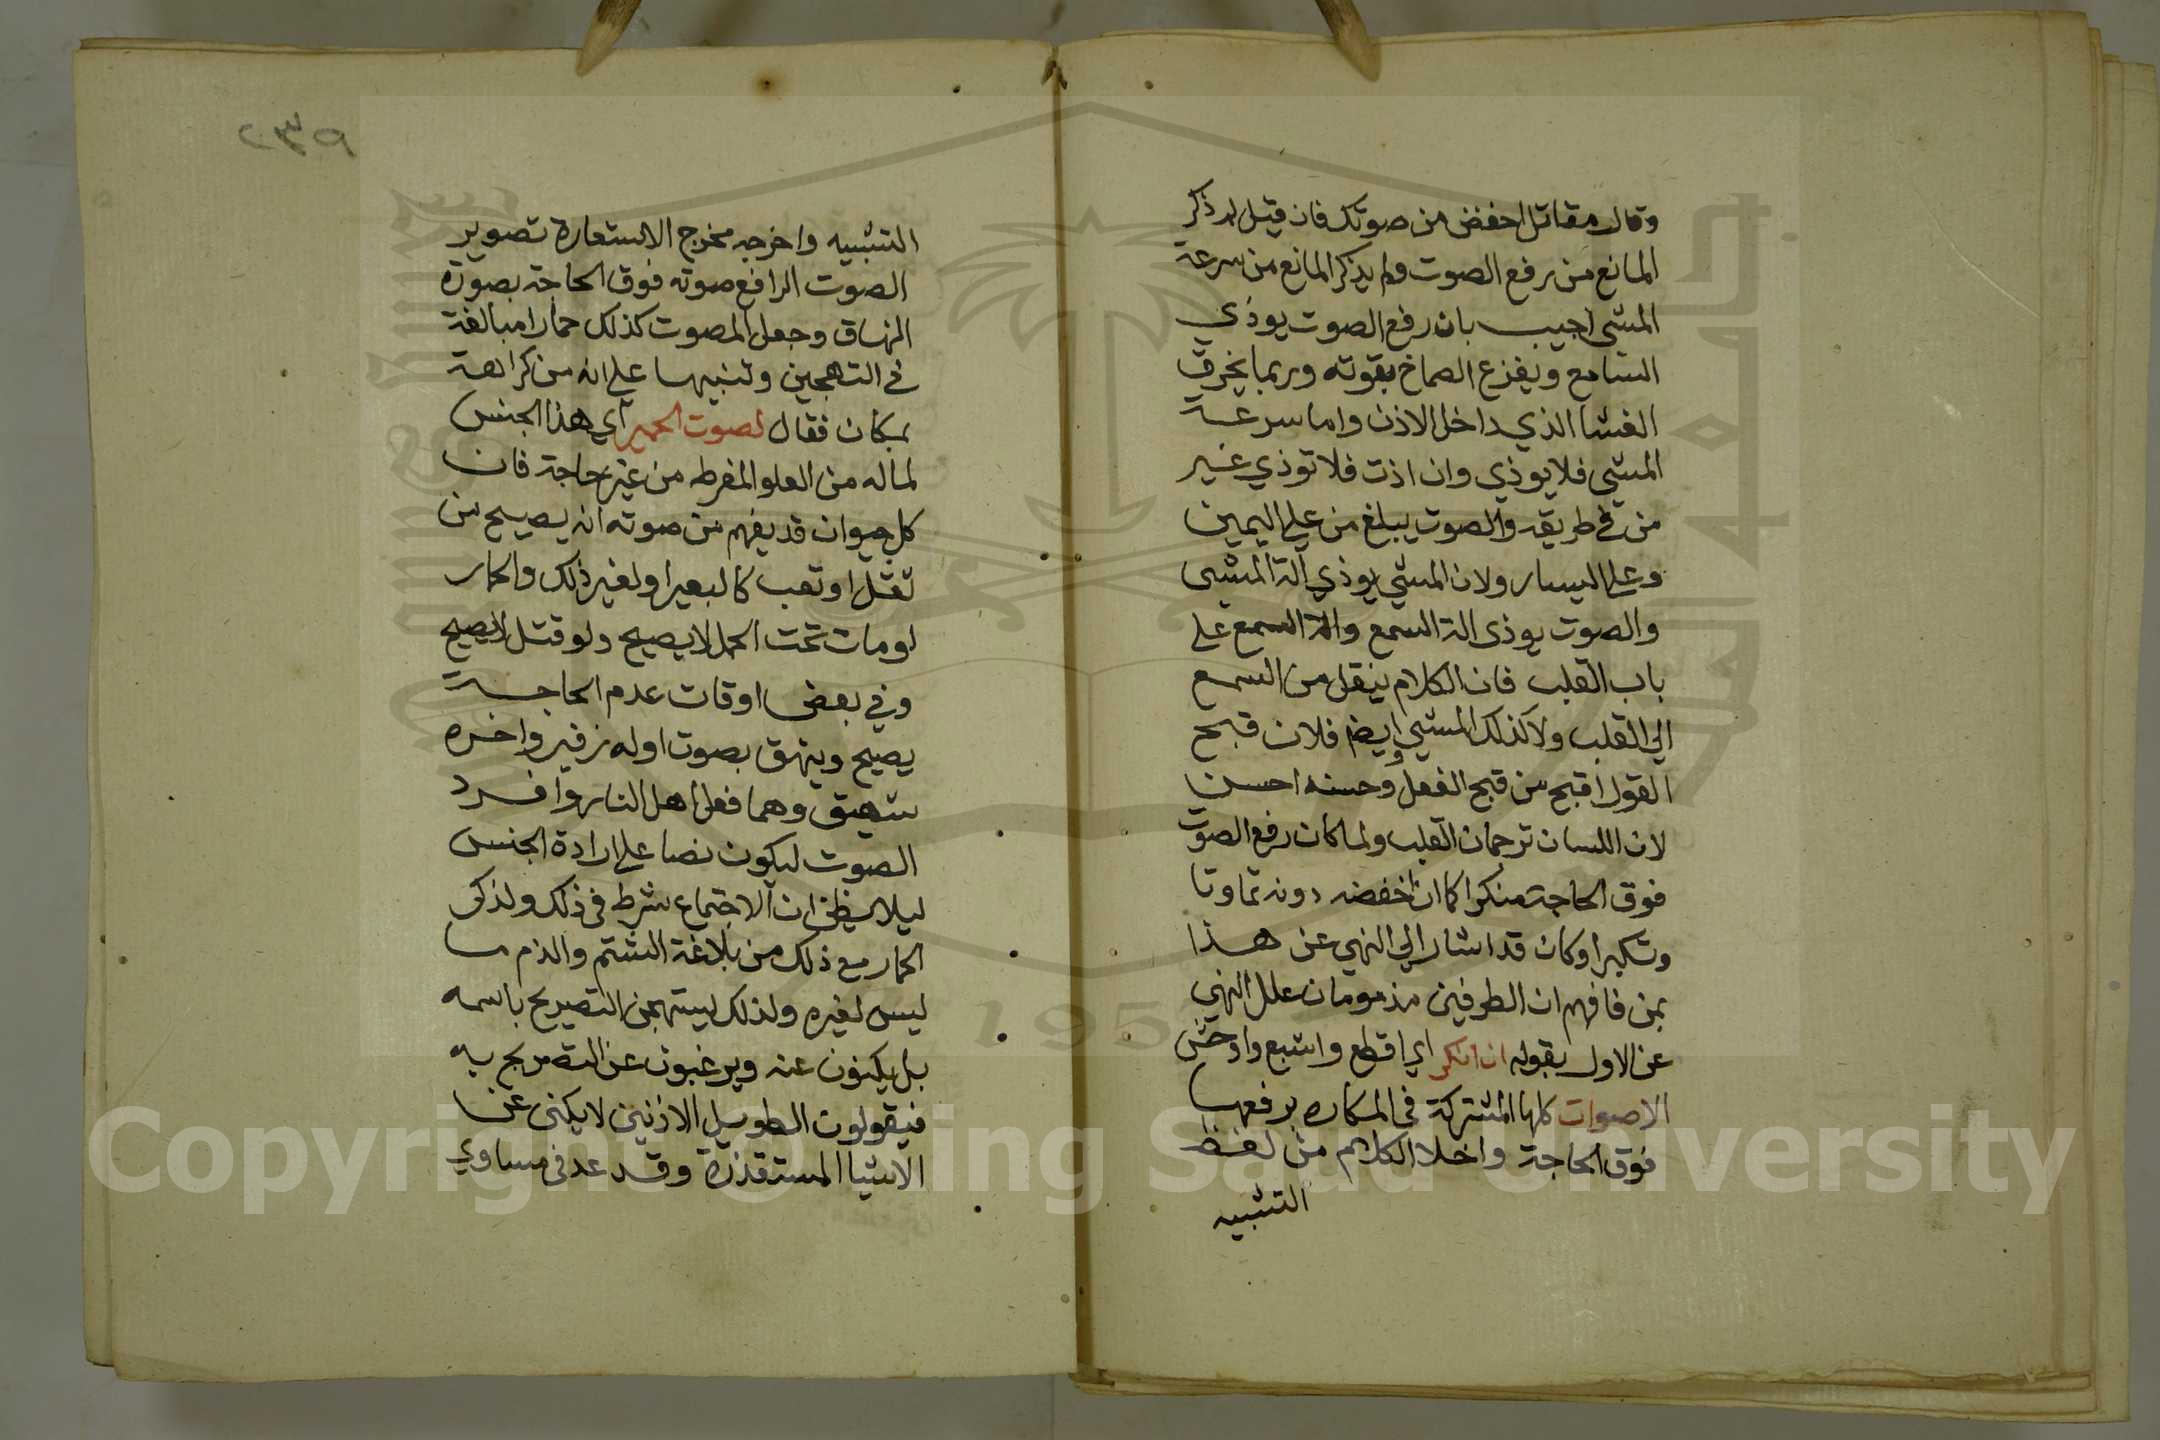 وقال مقاتل اخفض من صوتك فان قيل لم ذكر
المانع من رفع الصوت ولم يذكر المانع من سرعة
المشي اجيب بان رفع الصوت يوذي
السامع ويفزع الصماخ بقوته وربما يخرق
الغشا الذي داخل الاذن واما سرعة
المشي فلا يوذي وان اذت فلا توذي غير
من في طريقه والصوت يبلغ من على اليمين
وعلى اليسار ولان المشي يوذي آلة المشي
والصوت يوذي الة السمع والة السمع على
باب القلب فان الكلام ينقل من السمع
الي القلب ولا كذلك المشي وايضا فلان قبح
القول اقبح من قبح الفعل وحسنه احسن
لان اللسان ترجمان القلب ولما كان رفع الصوت
فوق الحاجة منكرا كما ان خفضه دونه تماوتا
وتكبرا وكان قد اشار الي النهي عن هذا
بمن فافهم ان الطرفين مذمومان علل النهي
عن الاول بقوله ان انكر اي اقطع واشبع واوحش
الاصوات كلها المشتركة في المكاره برفعها
فوق الحاجة واخلا الكلام من لفظ
التشبيه
٢٣٩
التشبيه واخرجه مخرج الاستعارة تصوير
الصوت الرافع صوته فوق الحاجة بصورة
النهاق وجعل المصوت كذلك حمارا مبالغة
في التهجين وتنبيها على انه من كراهة
بمكان فقال لصوت الحمير اي هذا الجنس
لماله من العلو المفرط من غير حاجة فان
كل حيوان قد يفهم من صوته انه يصيح من
ثقل او تعب كالبعير او لغير ذلك والحمار
لو مات تحت الحمل لا يصيح ولو قتل لا يصيح
وفي بعض اوقات عدم الحاجة
يصيح وينهق بصوت اوله زفير واخره
شهيق وهما فعل اهل النار وافرد
الصوت ليكون نصا على ارادة الجنس
ليلا يظن ان الاجتماع شرط في ذلك ولذكر
الحمار مع ذلك من بلاغة الشتم والذم ما
ليس لغيره ولذلك يستهجن التصريح باسمه
بل يكنون عنه ويرغبون عن التصريح به
فيقولون الطويل الاذنين لا يكنى عن
الاشيا المستقذرة وقد عد في مساوي
Copyright © King Saud University
195